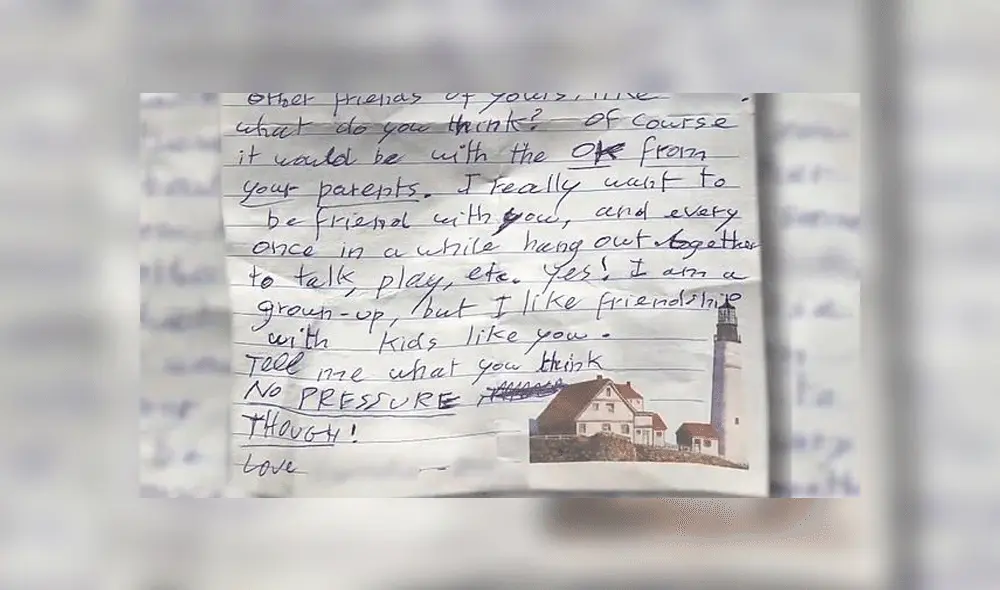 other friends of yours, like
what do you think? Of course
it would be with the OK from
your parents. I really want to
be friend with you, and every
once in a while hang out together
to talk, play, etc. Yes! I am a
grown-up, but I like friendship
with kids like you.
Tell me what you think
NO PRESSURE
THOUGH!
Love